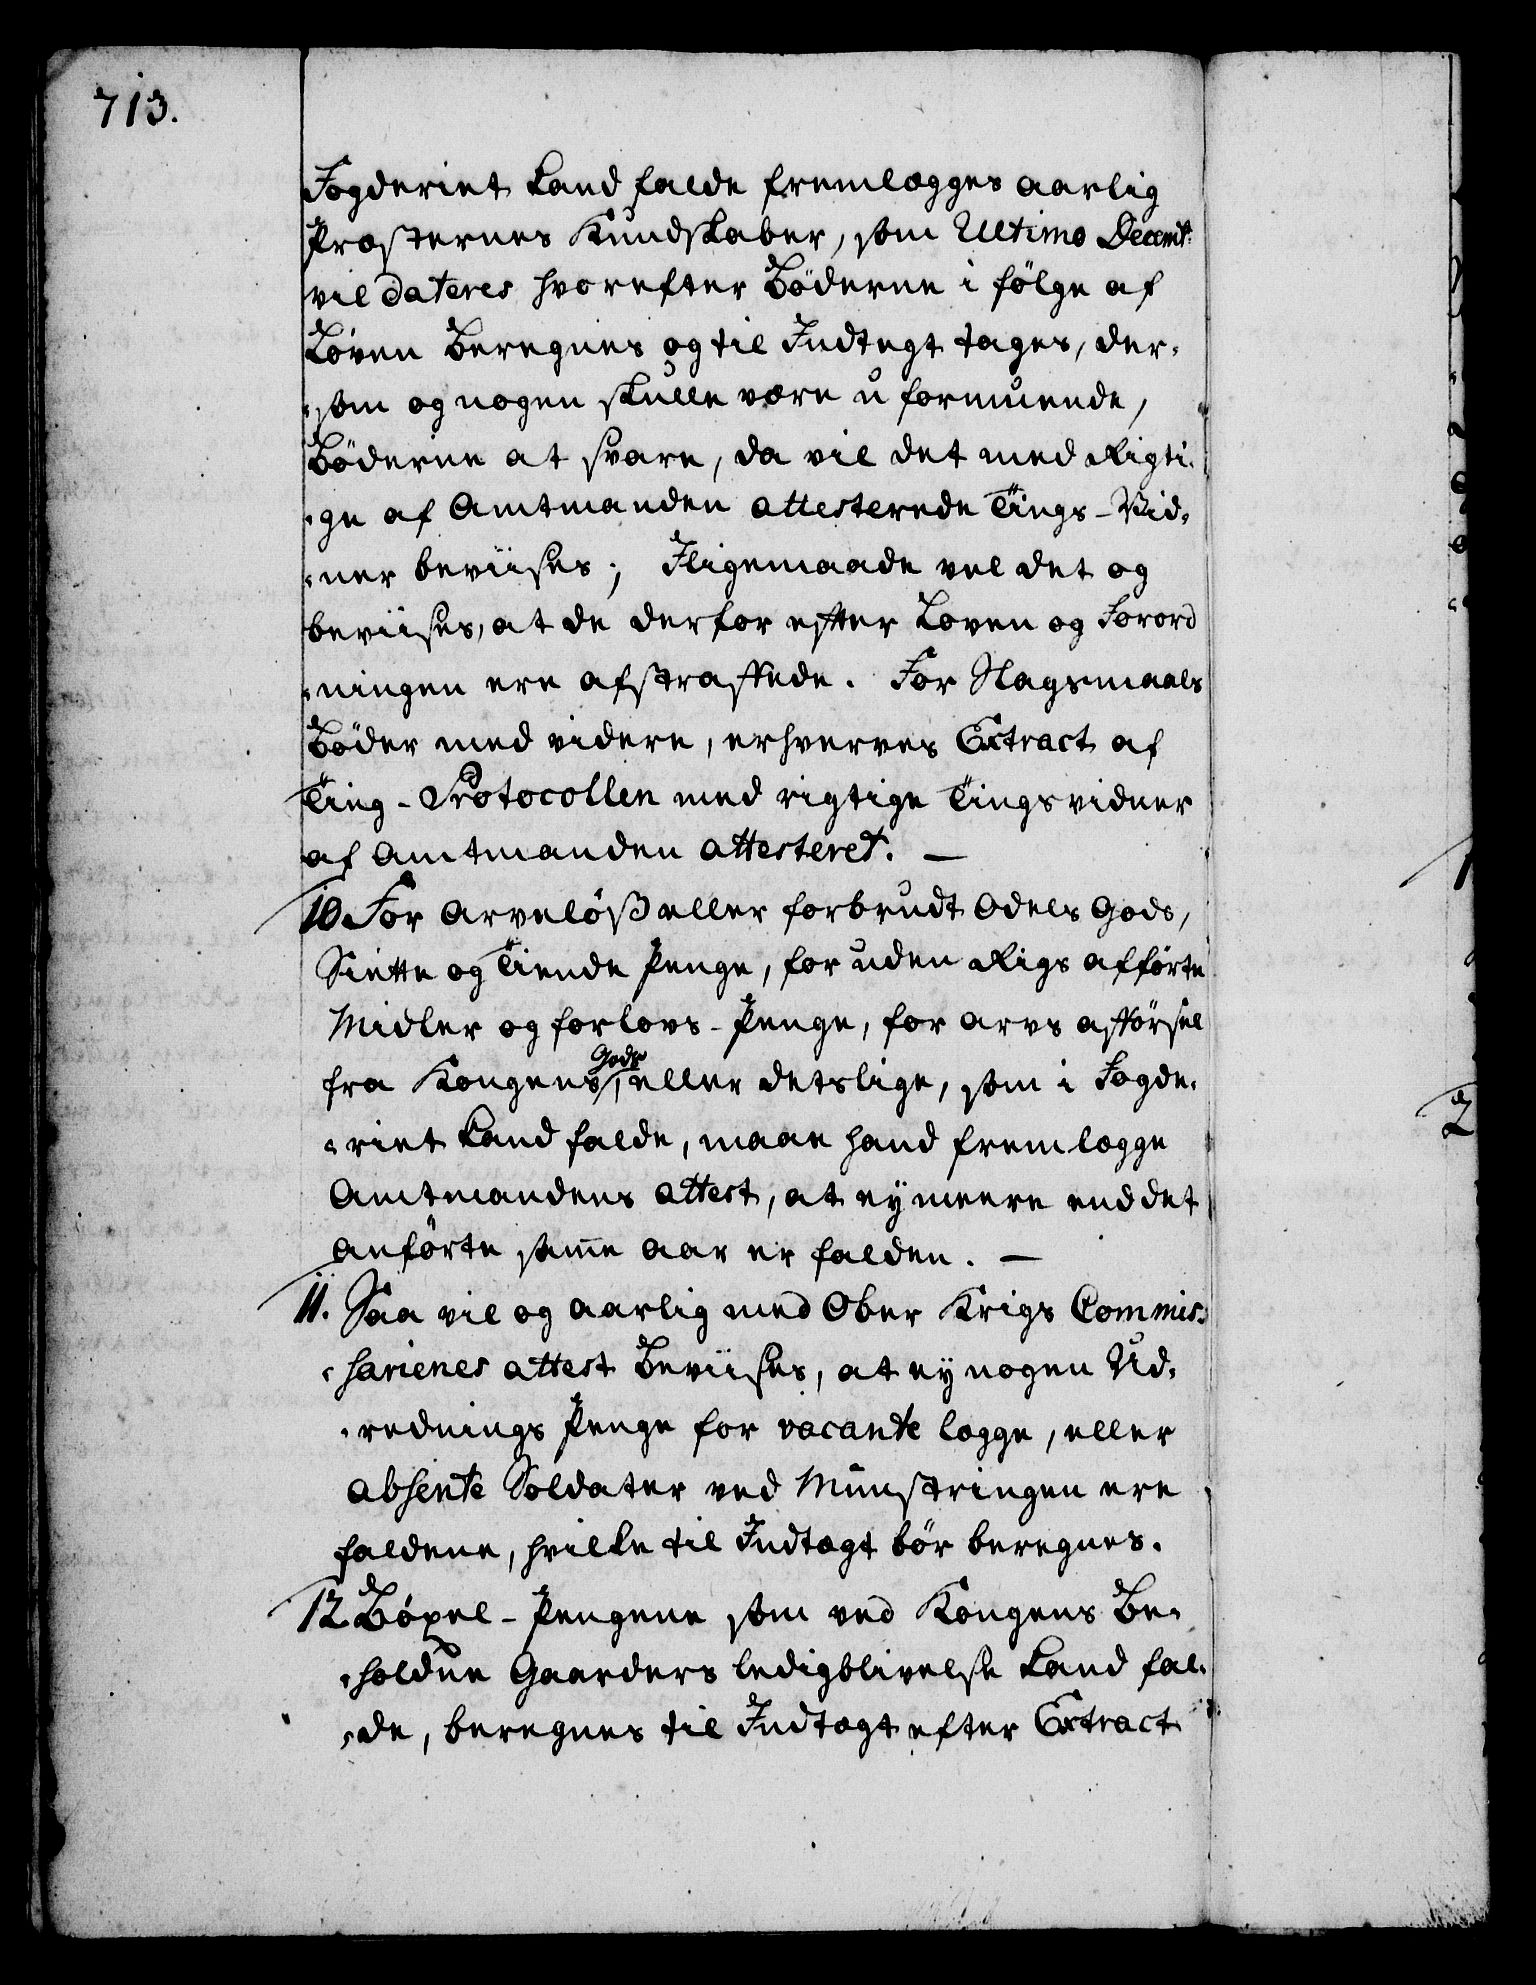 713.
Fogderiet kand falde fremlægges aarlig
Præsternes Kundskaber, som Ultimo Decembr:
vil dateres hvorefter Böderne i fölge af
Loven Beregnes og til Indtegt tages, der-
-som og nogen skulle være u formuende,
Böderne at svare, da vil det med Rigti-
-ge af Amtmanden attesterede Tings-Vid-
-ner beviises; Iligemaade vel det og
beviises, at de derfor efter Loven og Forord
-ningen ere afstraffede. For Slagsmaals
Böder med videre, erhverves Extract af
Ting-Protocollen med rigtige Tingsvidner
af Amtmanden attesteret. —
10 For Arvelöß eller forbrudt Odels Gods,
Siette og Tiende Penge, for uden Rigs afförte
Midler og forlovs-Penge, for arvs afförsel
fra Kongens Gods, eller detslige, som i Fogde-
-riet kand falde, maae hand fremlægge
Amtmandens attest, at ey meere end det
anförte samme aar er falden. —
11. Saa vil og aarlig med Ober Krigs Commis-
-sarienes attest Beviises, at ey nogen Ud-
-rednings Penge for vacante lægge, eller
absente Soldater ved Mönstringen ere
faldene, hvilke til Indtægt bör beregnes.
12 Böxel-Pengene som ved Kongens Be-
-holdne Gaarders ledigblivelse kand fal-
-de, beregnes til Indtægt efter Extract